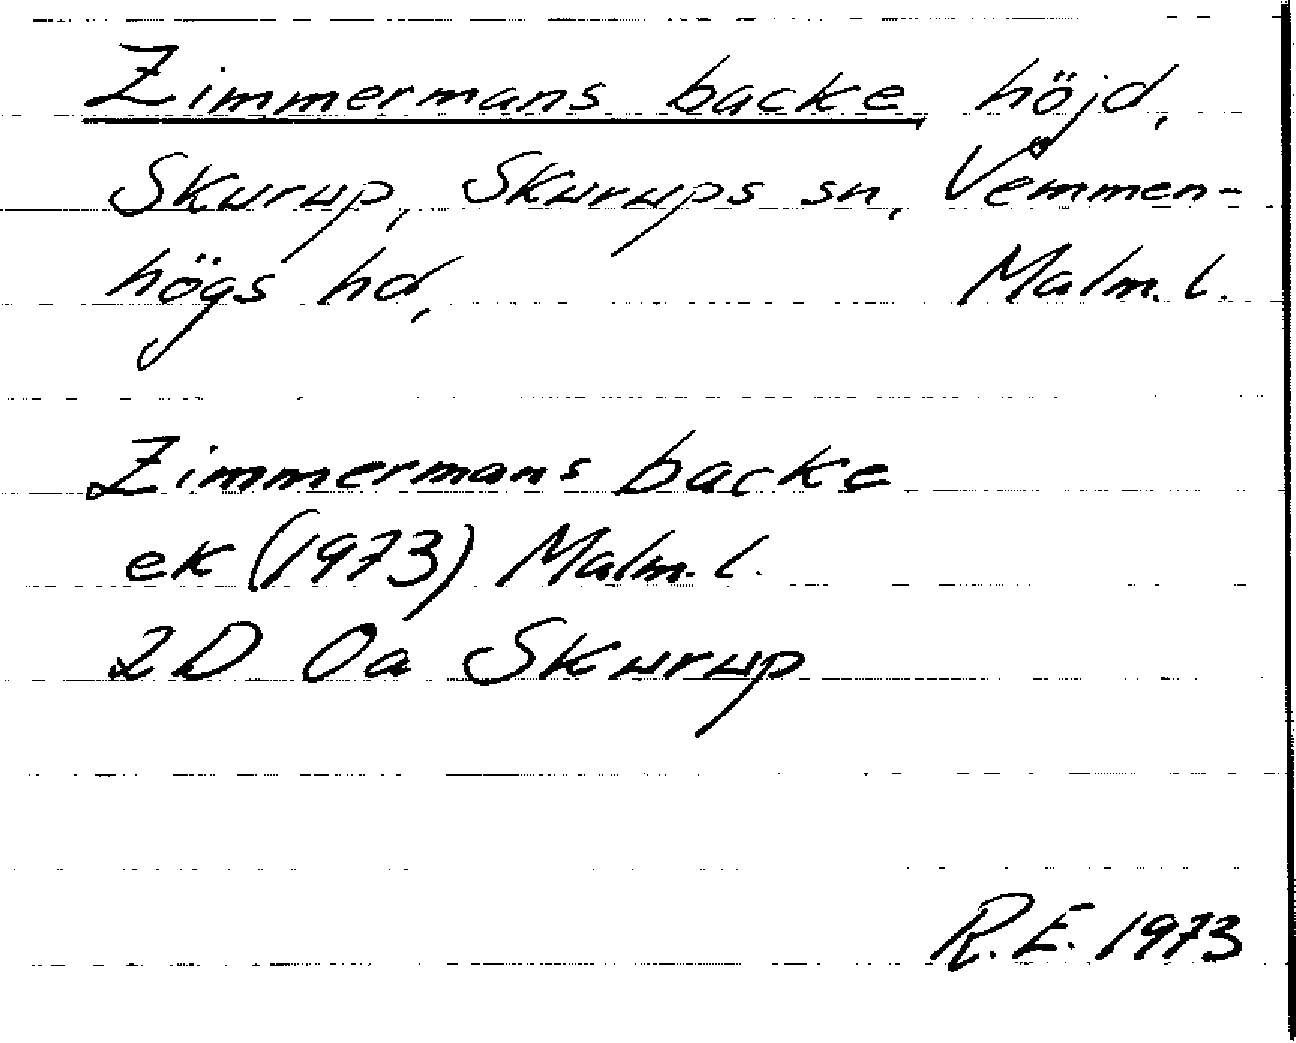 Zimmermans backe höjd,
Skurup, Skurups sn, Vemmen-
högs hd, Malm. l.
Zimmermans backe
ek (1973) Malm. l.
2D 0a Skurup
R.E. 1973